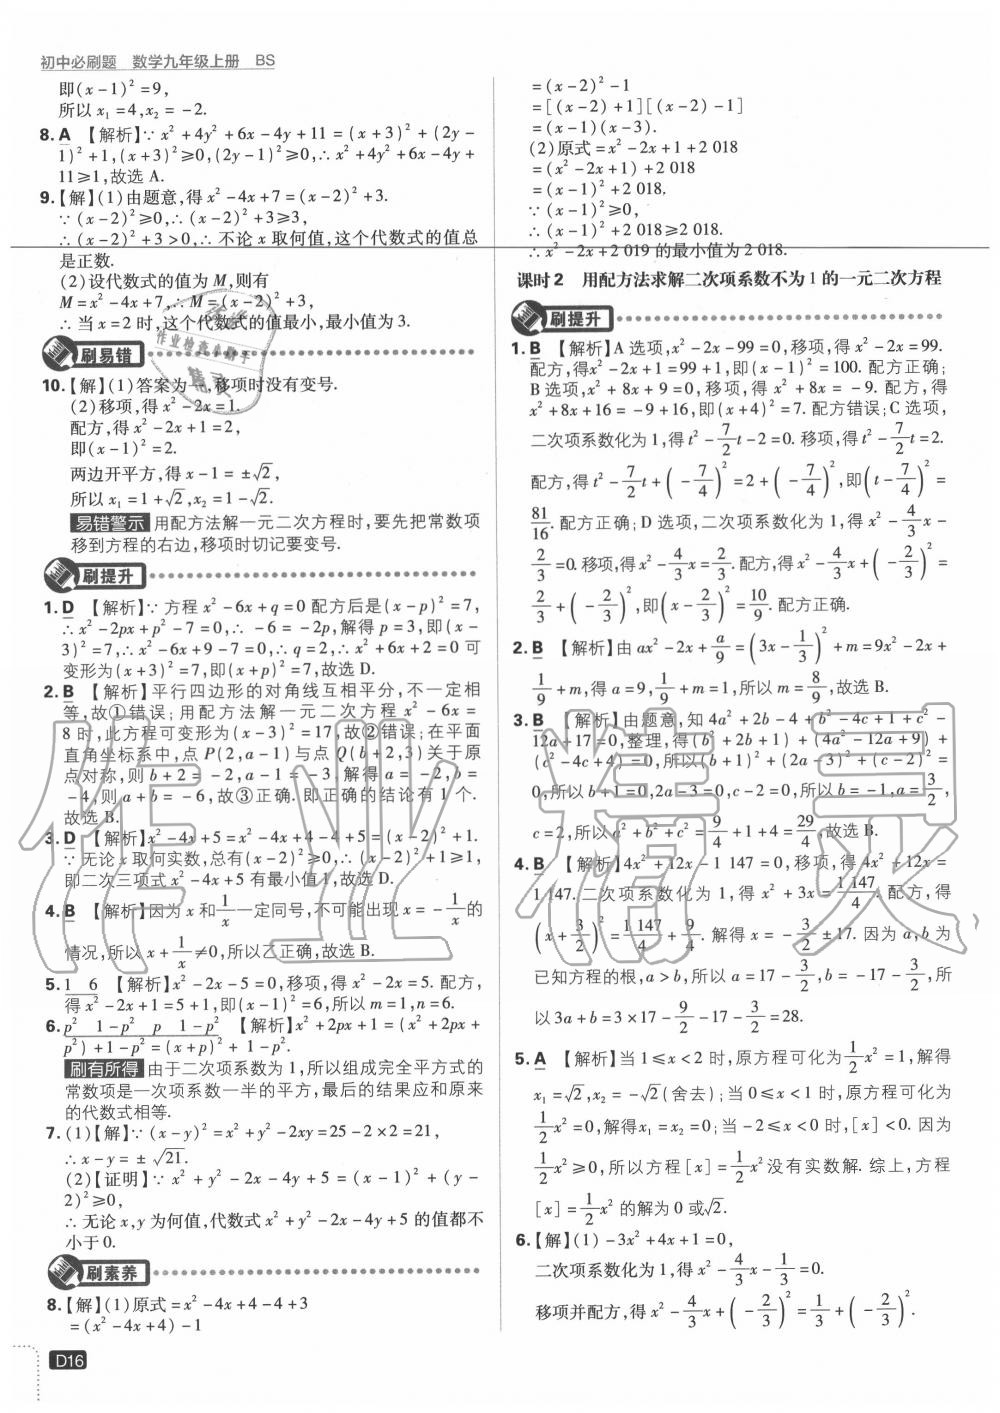 初中必刷题 数学九年级上册 BS
即(x-1)²=9,
所以x₁=4,x₂=-2.
8. A 【解析】∵x²+4y²+6x-4y+11=(x+3)²+(2y-
1)²+1,(x+3)²≥0,(2y-1)²≥0,∴x²+4y²+6x-4y+
11≥1,故选A.
9.【解】(1)由题意,得x²-4x+7=(x-2)²+3.
∵(x-2)²≥0,∴(x-2)²+3≥3,
∴(x-2)²+3>0,∴不论x取何值,这个代数式的值总
是正数.
(2)设代数式的值为M,则有
M=x²-4x+7,∴M=(x-2)²+3,
∴当x=2时,这个代数式的值最小,最小值为3.
刷易错
10.【解】(1)答案为一,移项时没有变号.
(2)移项,得x²-2x=1.
配方,得x²-2x+1=2,
即(x-1)²=2.
两边开平方,得x-1=±√2,
所以x₁=1+√2,x₂=1-√2.
易错警示 用配方法解一元二次方程时,要先把常数项
移到方程的右边,移项时切记要变号.
刷提升
1. D 【解析】∵方程x²-6x+q=0配方后是(x-p)²=7,
∴x²-2px+p²-7=0,∴-6=-2p,解得p=3,即(x-
3)²=7,∴x²-6x+9-7=0,∴q=2,∴x²+6x+2=0可
变形为(x+3)²=7,即(x+p)²=7,故选D.
2. B 【解析】平行四边形的对角线互相平分,不一定相
等,故①错误;用配方法解一元二次方程x²-6x=
8时,此方程可变形为(x-3)²=17,故②错误;在平面
直角坐标系中,点P(2,a-1)与点Q(b+2,3)关于原
点对称,则b+2=-2,a-1=-3.解得a=-2,b=
-4,则a+b=-6,故③正确.即正确的结论有1个.
故选B.
3. D 【解析】x²-4x+5=x²-4x+4-4+5=(x-2)²+1.
∵无论x取何实数,总有(x-2)²≥0,∴(x-2)²+1≥1,
即二次三项式x²-4x+5有最小值1,故选D.
4. B 【解析】因为x和1/x一定同号,不可能出现x=-1/x的
情况,所以x+1/x≠0,所以乙正确,故选B.
5. 1 6 【解析】x²-2x-5=0,移项,得x²-2x=5.配方,
得x²-2x+1=5+1,即(x-1)²=6,所以m=1,n=6.
6. p² 1-p² p 1-p² 【解析】x²+2px+1=(x²+2px+
p²)+1-p²=(x+p)²+1-p².
刷有所得 由于二次项系数为1,所以组成完全平方式的
常数项是一次项系数一半的平方,最后的结果应和原来
的代数式相等.
7.(1)【解】∵(x-y)²=x²+y²-2xy=25-2×2=21,
∴x-y=±√21.
(2)【证明】∵x²+y²-2x-4y+5=(x-1)²+(y-
2)²≥0,
∴无论x,y为何值,代数式x²+y²-2x-4y+5的值都不
小于0.
刷素养
8.【解】(1)原式=x²-4x+4-4+3
=(x²-4x+4)-1
D16
=(x-2)²-1
=[(x-2)+1][(x-2)-1]
=(x-1)(x-3).
(2)原式=x²-2x+1+2 018
=(x²-2x+1)+2 018
=(x-1)²+2 018.
∵(x-1)²≥0,
∴(x-1)²+2 018≥2 018.
∴x²-2x+2 019的最小值为2 018.
课时2 用配方法求解二次项系数不为1的一元二次方程
刷提升
1. B 【解析】A选项,x²-2x-99=0,移项,得x²-2x=99.
配方,得x²-2x+1=99+1,即(x-1)²=100.配方正确;
B选项,x²+8x+9=0,移项,得x²+8x=-9.配方,得
x²+8x+16=-9+16,即(x+4)²=7.配方错误;C选项,
二次项系数化为1,得t²-7/2t-2=0.移项,得t²-7/2t=2.
配方,得t²-7/2t+(-7/4)²=2+(-7/4)²,即(t-7/4)²=
81/16.配方正确;D选项,二次项系数化为1,得x²-4/3x-
2/3=0.移项,得x²-4/3x=2/3.配方,得x²-4/3x+(-2/3)²=
2/3+(-2/3)²,即(x-2/3)²=10/9.配方正确.
2. B 【解析】由ax²-2x+a/9=(3x-1/3)²+m=9x²-2x+
1/9+m,得a=9,1/9+m=1,所以m=8/9,故选B.
3. B 【解析】由题意,知4a²+2b-4+b²-4c+1+c²-
12a+17=0,整理,得(b²+2b+1)+(4a²-12a+9)+
(c²-4c+4)=0,所以(b+1)²+(2a-3)²+(c-2)²=
0,所以b+1=0,2a-3=0,c-2=0,所以b=-1,a=3/2,
c=2,所以a²+b²+c²=9/4+1+4=29/4,故选B.
4. B 【解析】4x²+12x-1 147=0,移项,得4x²+12x=
1 147.二次项系数化为1,得x²+3x=1 147/4.配方,得
(x+3/2)²=1 147/4+9/4.解得x=-3/2±17.因为a,b为
已知方程的根,a>b,所以a=17-3/2,b=-17-3/2,所
以3a+b=3×17-9/2-17-3/2=28.
5. A 【解析】当1≤x<2时,原方程可化为1/2x²=1,解得
x₁=√2,x₂=-√2(舍去);当0≤x<1时,原方程可化为
1/2x²=0,解得x₁=x₂=0;当-2≤x<0时,[x]<0.因为
1/2x²≥0,所以方程[x]=1/2x²没有实数解.综上,方程
[x]=1/2x²的解为0或√2.
6.【解】(1)-3x²+4x+1=0,
二次项系数化为1,得x²-4/3x-1/3=0.
移项并配方,得x²-4/3x+(-2/3)²=1/3+(-2/3)².
作业精灵